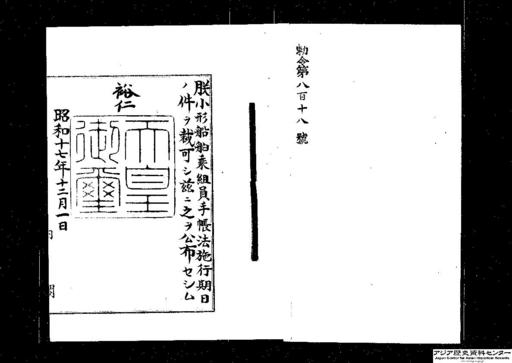 勅令第八百十八號
朕小形船舶乗組員手帳法施行期日
ノ件ヲ裁可シ茲ニ之ヲ公布セシム
裕仁
天皇御璽
昭和十七年十二月一日
内閣
アジア歴史資料センター
Japan Center for Asian Historical Records